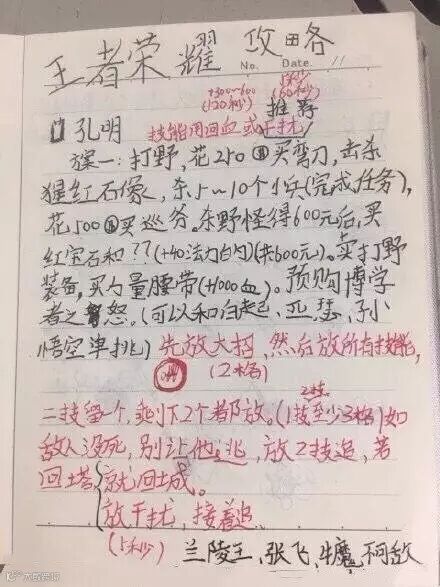 王者荣耀 攻略
No. Date. 11
+300~600
(120秒)
(60秒)
推荐
孔明 技能用回血或干扰
方案一:打野,花250买弯刀,击杀
猩红石像,杀5~10个小兵(完成任务),
花500买巡务。杀野怪得600元后,买
红宝石和??(+40法力白内)(共600元)。卖打野
装备,买力量腰带(+1000血)。预购博学
者之怒。(可以和白起、亚瑟、孙
悟空单挑)先放大招,然后放所有技能,
(2格)
2技
二技留一个,剩下2个都放。(1技至少3格)如
敌人没死,别让他逃,放2技追,若
回塔就回城。
放干扰,接着追
(5秒)
兰陵王、张飞、牛魔、不可敌
大成资讯